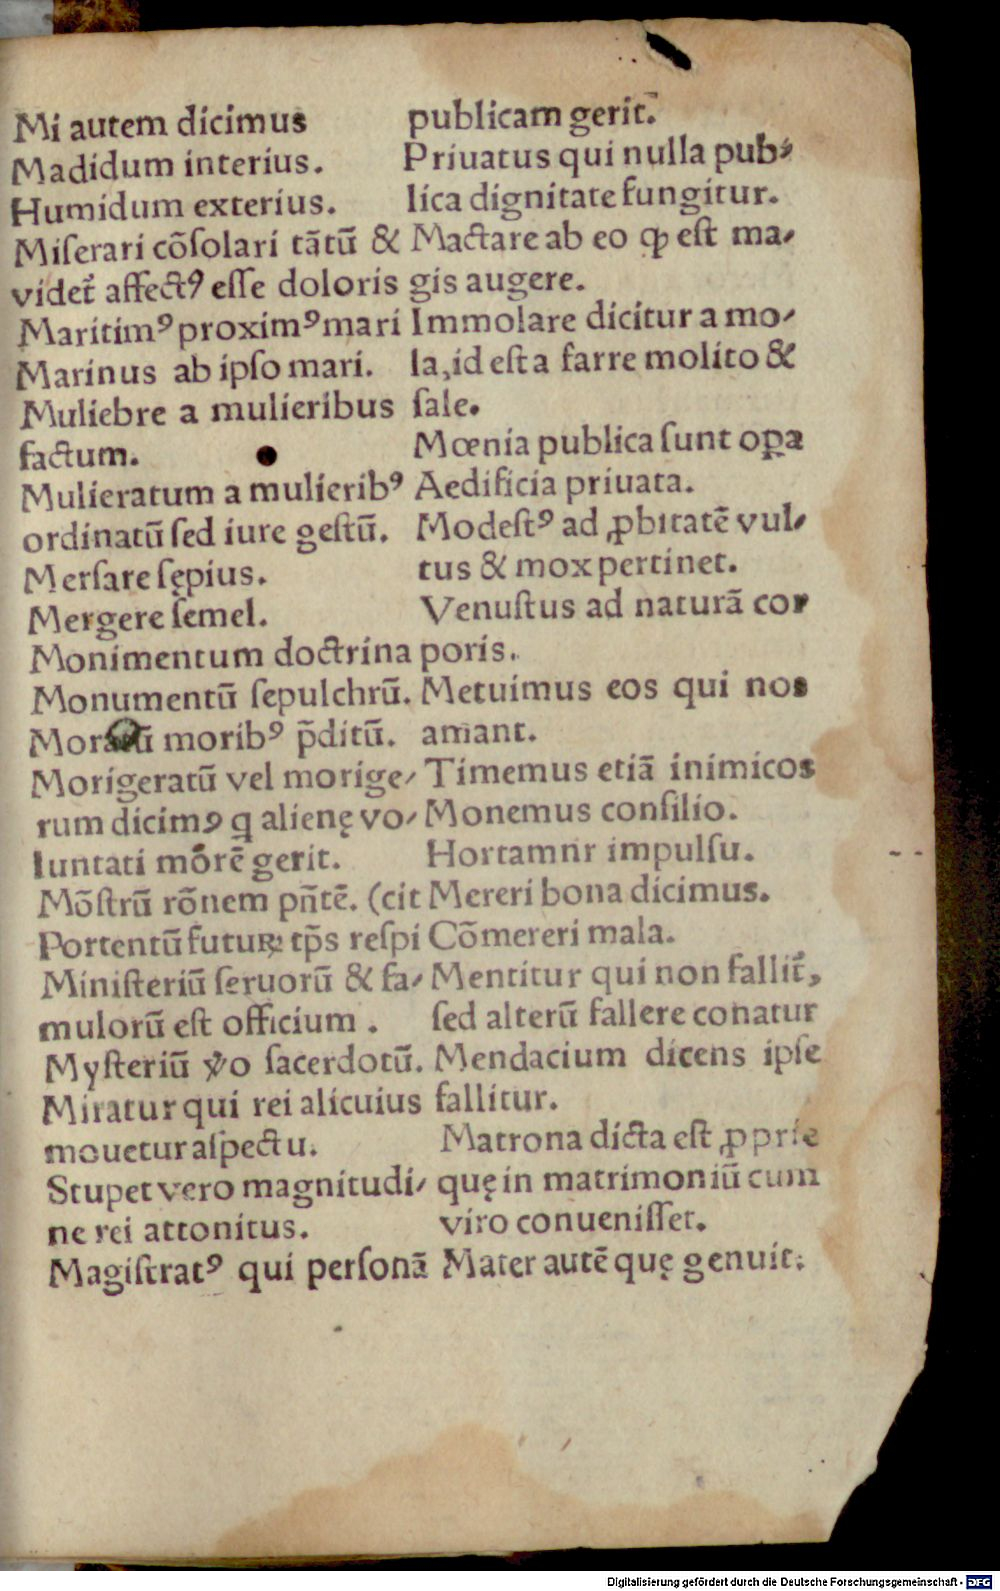 Mi autem dicimus
Madidum interius.
Humidum exterius.
Miſerari cõſolari tãtũ &
videt᷑ affectꝰ eſſe doloris
Maritimꝰ proximꝰ mari
Marinus ab ipſo mari.
Muliebre a mulieribus
factum.
Mulieratum a mulieribꝰ
ordinatũ ſed iure geſtũ.
Merſare ſępius.
Mergere ſemel.
Monimentum doctrina
Monumentũ ſepulchrũ.
Moratũ moribꝰ p̃ditũ.
Morigeratũ vel morige⸗
rum dicimꝰ q alienę vo⸗
luntati mõrẽ gerit.
Mõſtrũ rõnem pñtẽ. (cit
Portentũ futuꝝ tp̃s reſpi
Miniſteriũ ſeruorũ & fa⸗
mulorũ eſt officium .
Myſteriũ ꝟo ſacerdotũ.
Miratur qui rei alicuius
mouetur aſpectu.
Stupet vero magnitudi⸗
ne rei attonitus.
Magiſtratꝰ qui perſonã
publicam gerit.
Priuatus qui nulla pub⸗
lica dignitate fungitur.
Mactare ab eo ꝙ eſt ma⸗
gis augere.
Immolare dicitur a mo⸗
la, id eſt a farre molito &
ſale.
Mœnia publica ſunt oꝑa
Aedificia priuata.
Modeſtꝰ ad ꝓbitatẽ vul⸗
tus & mox pertinet.
Venuſtus ad naturã cor
poris.
Metuimus eos qui nos
amant.
Timemus etiã inimicos
Monemus conſilio.
Hortamnr impulſu.
Mereri bona dicimus.
Cõmereri mala.
Mentitur qui non fallit᷑,
ſed alterũ fallere conatur
Mendacium dicens ipſe
fallitur.
Matrona dicta eſt ꝓprie
quę in matrimoniũ cum
viro conueniſſet.
Mater autẽ quę genuit.
Digitalisierung gefördert durch die Deutsche Forschungsgemeinschaft - DFG